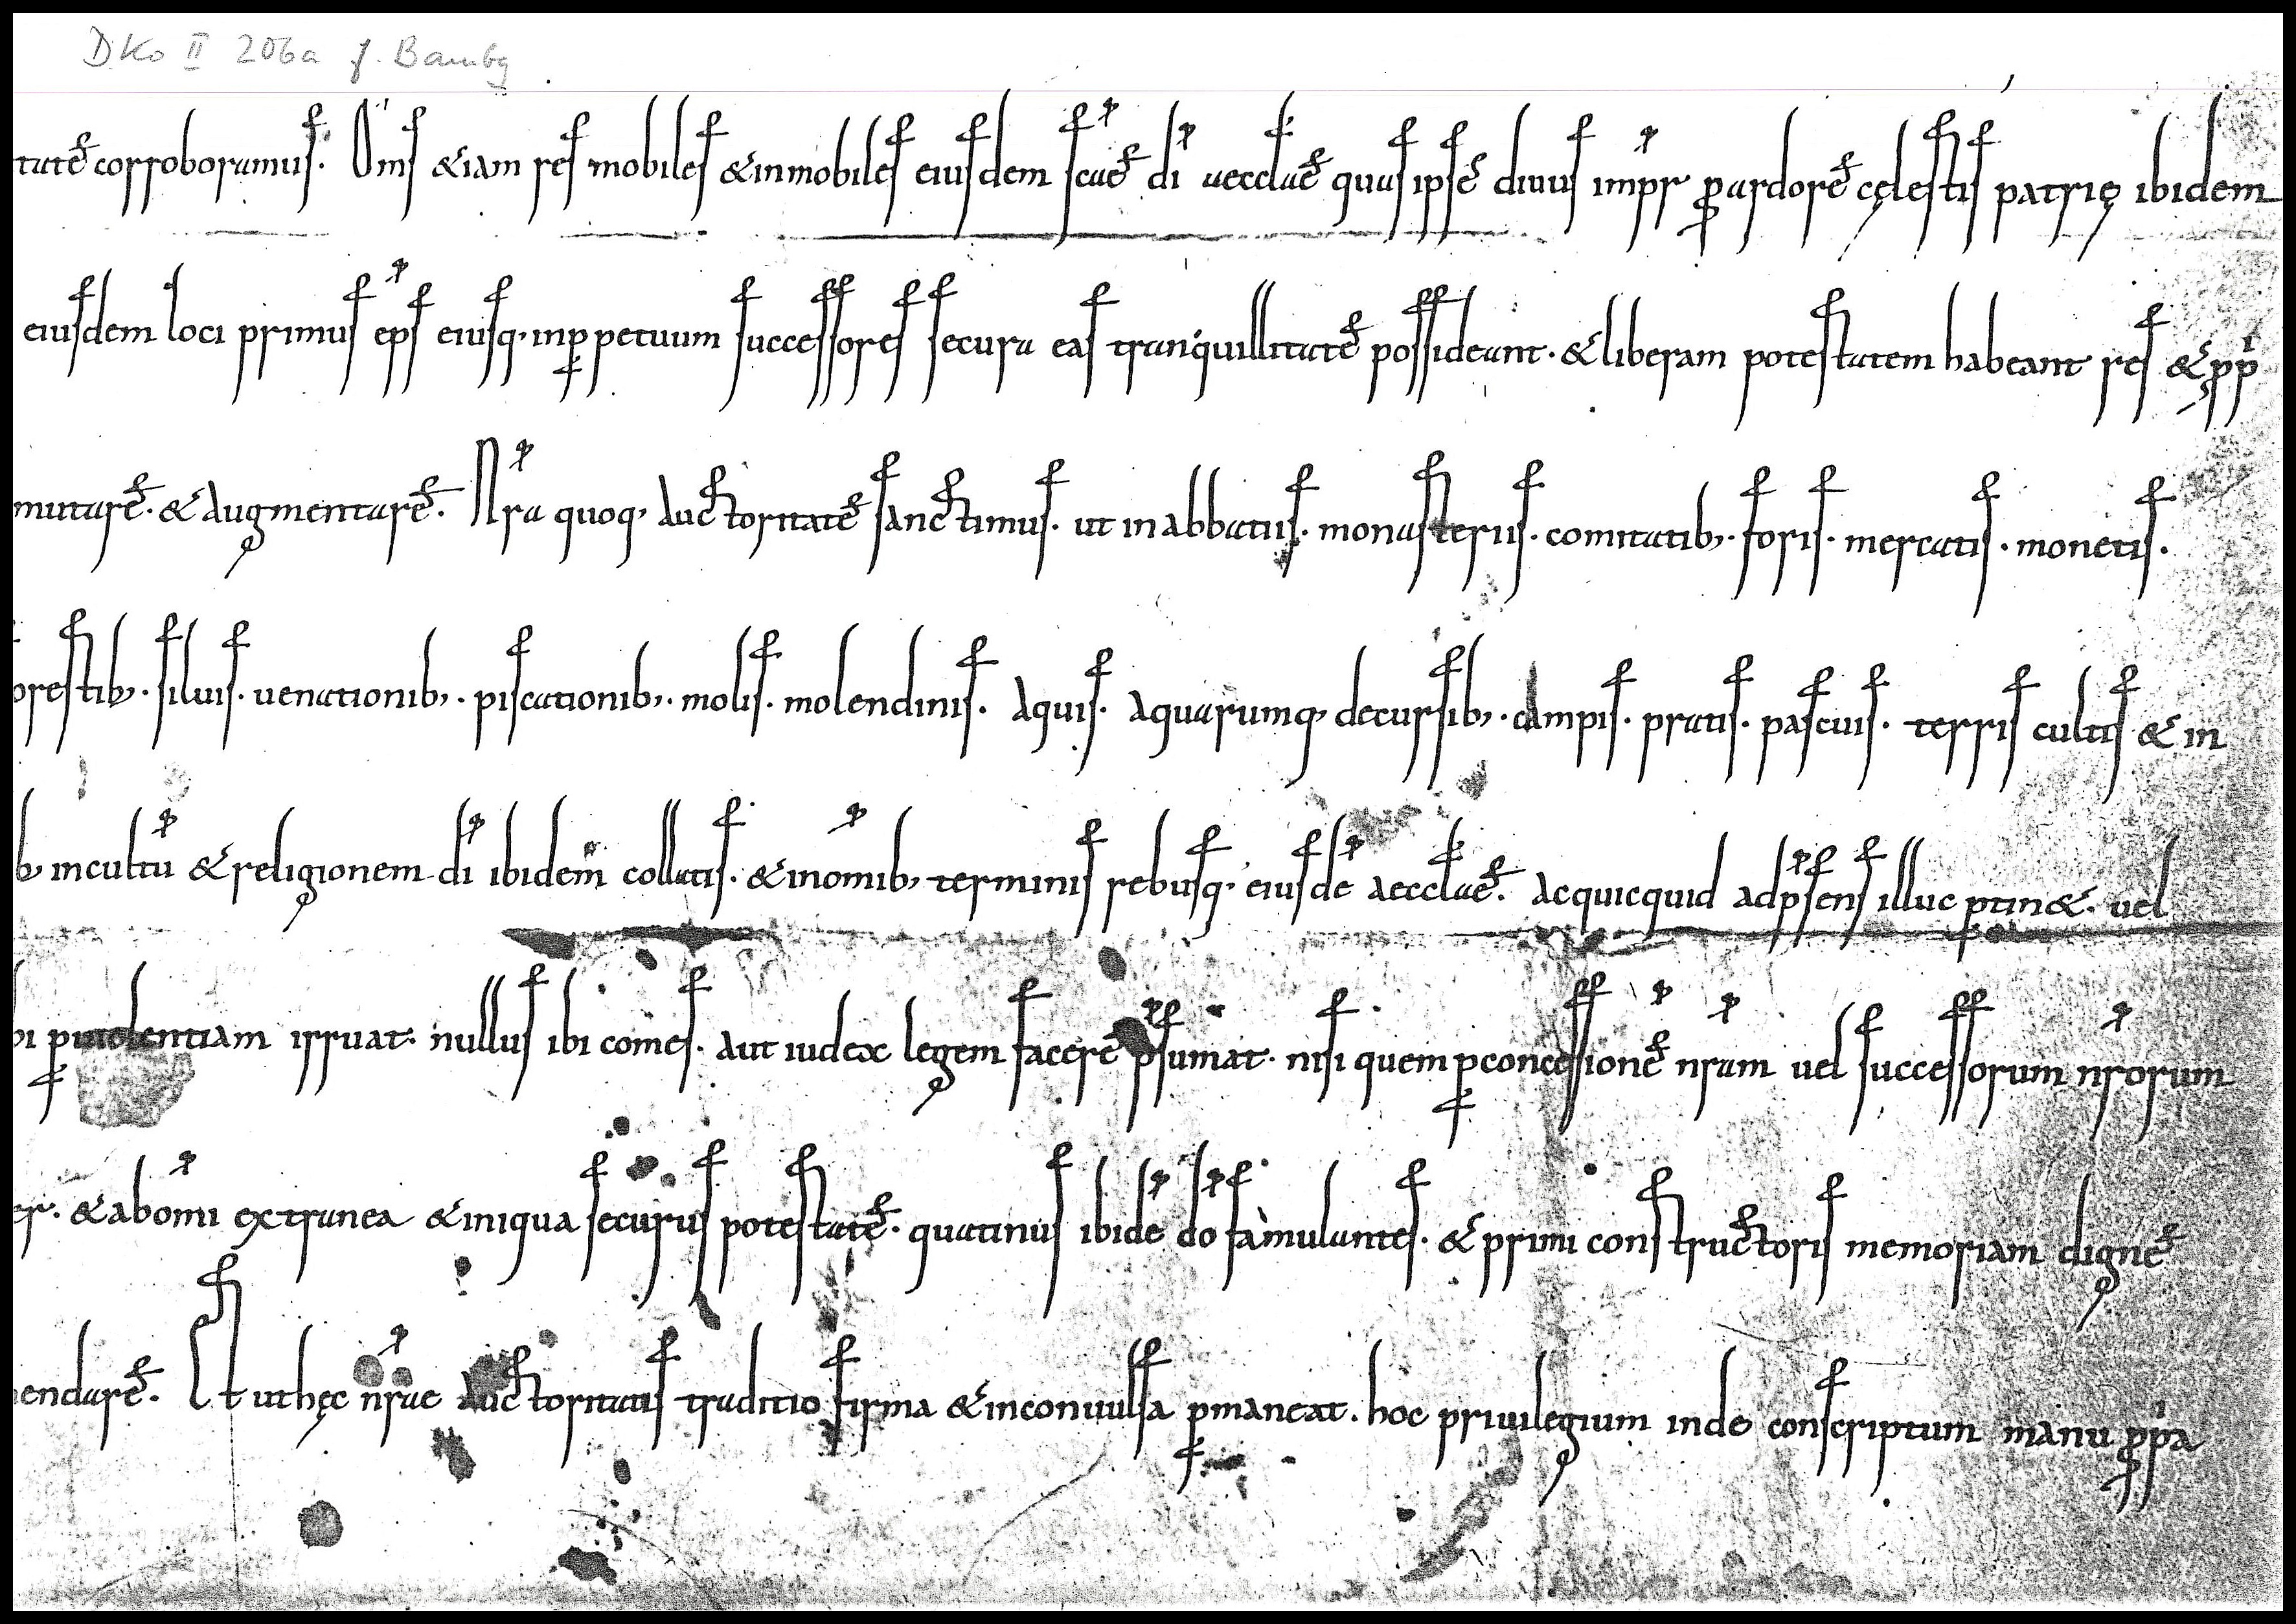 DKo II 206a f. Bambg
tate corroboramus. Oms &iam res mobiles &inmobiles eiusdem scae di aecclae quas ipse diuus impr p ardore cęlestis patrię ibidem
eiusdem loci primus eps eiusq· inppetuum successores secura eas tranquillitate possideant. &liberam potestatem habeant res & pp
mutare. & augmentare. Nra quoq, auctoritate sanctimus. ut in abbatiis. monasteriis. comitatib,. foris. mercatis. monetis.
orestib,. siluis. uenationib,. piscationib,. molis. molendinis. aquis. aquarumq, decursib,. campis. pratis. pascuis. terris cultis & in
b, incultū &religionem di ibidem collatis. &inomib, terminis rebusq· eiusdē aecclae. acquicquid adpsens illuc ptin&. uel
bi puiolentiam irruat. nullus ibi comes. aut iudex legem facere psumat. nisi quem pconcessione nram uel successorum nrorum
er. &abomi extranea &iniqua securus potestate. quatinus ibidē do famulantes. & primi constructoris memoriam digne
endare. Et uthęc nrae auctoritatis traditio firma &inconuulsa pmaneat. hoc priuilegium inde conscriptum manu ppa